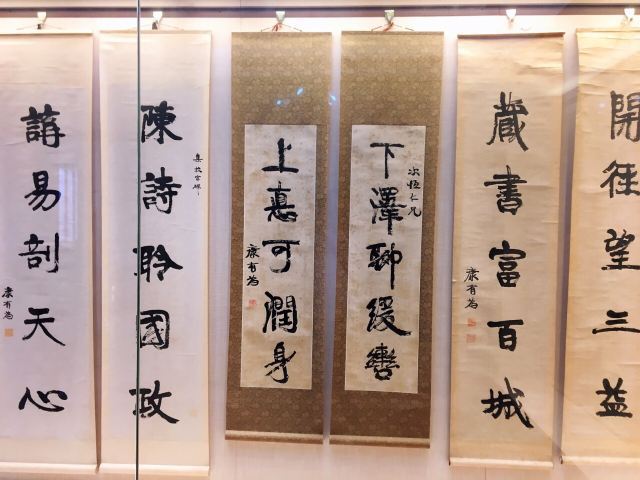 開徑望三益
藏書富百城
康有為
下澤聊緩轡
仁兄
上惪可潤身
康有為
陳詩聆國政
講易剖天心
康有為